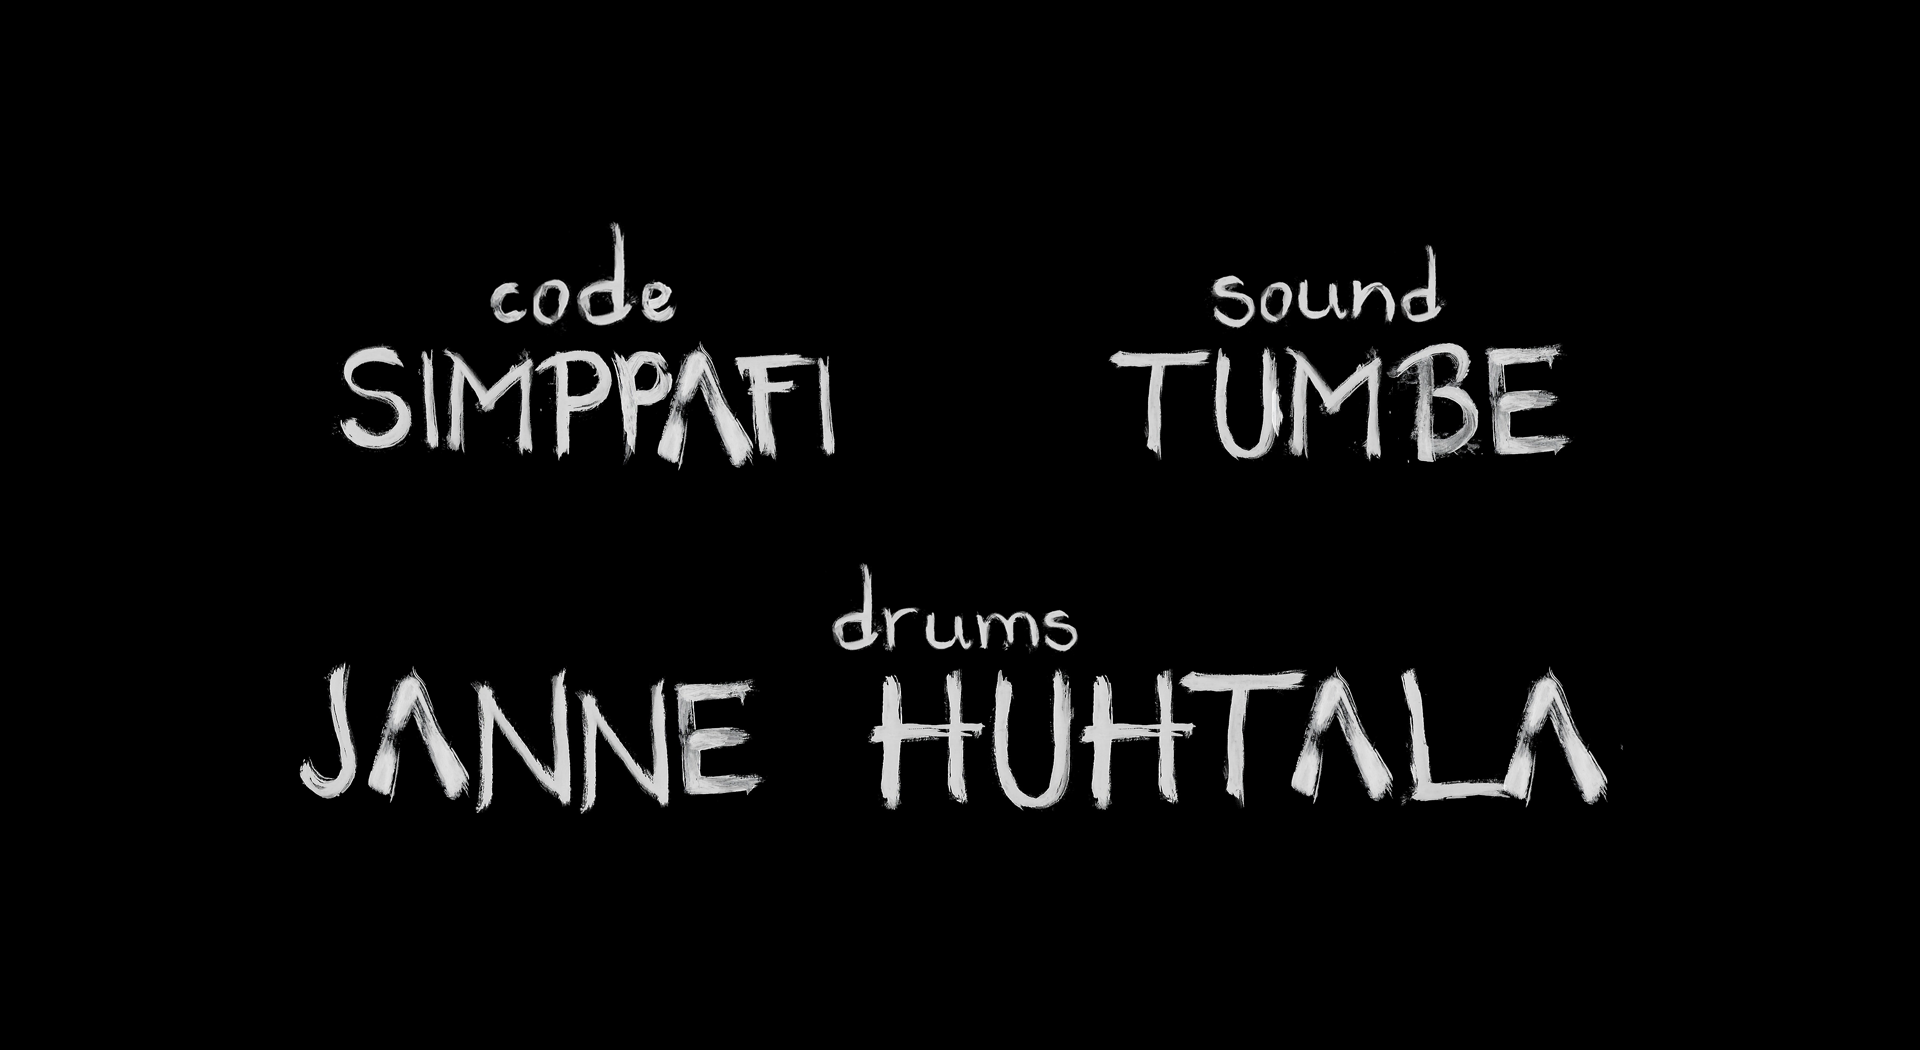 code
SIMPPAFI
sound
TUMBE
drums
JANNE HUHTALA